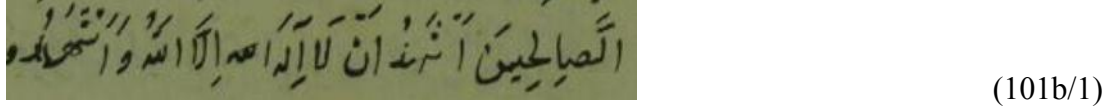 الَّصالِحينَ اَشْهَدُ اَنْ لَآاِلَهَ اِلَّا اللهُ وَاَشْهَدُو (101b/1)